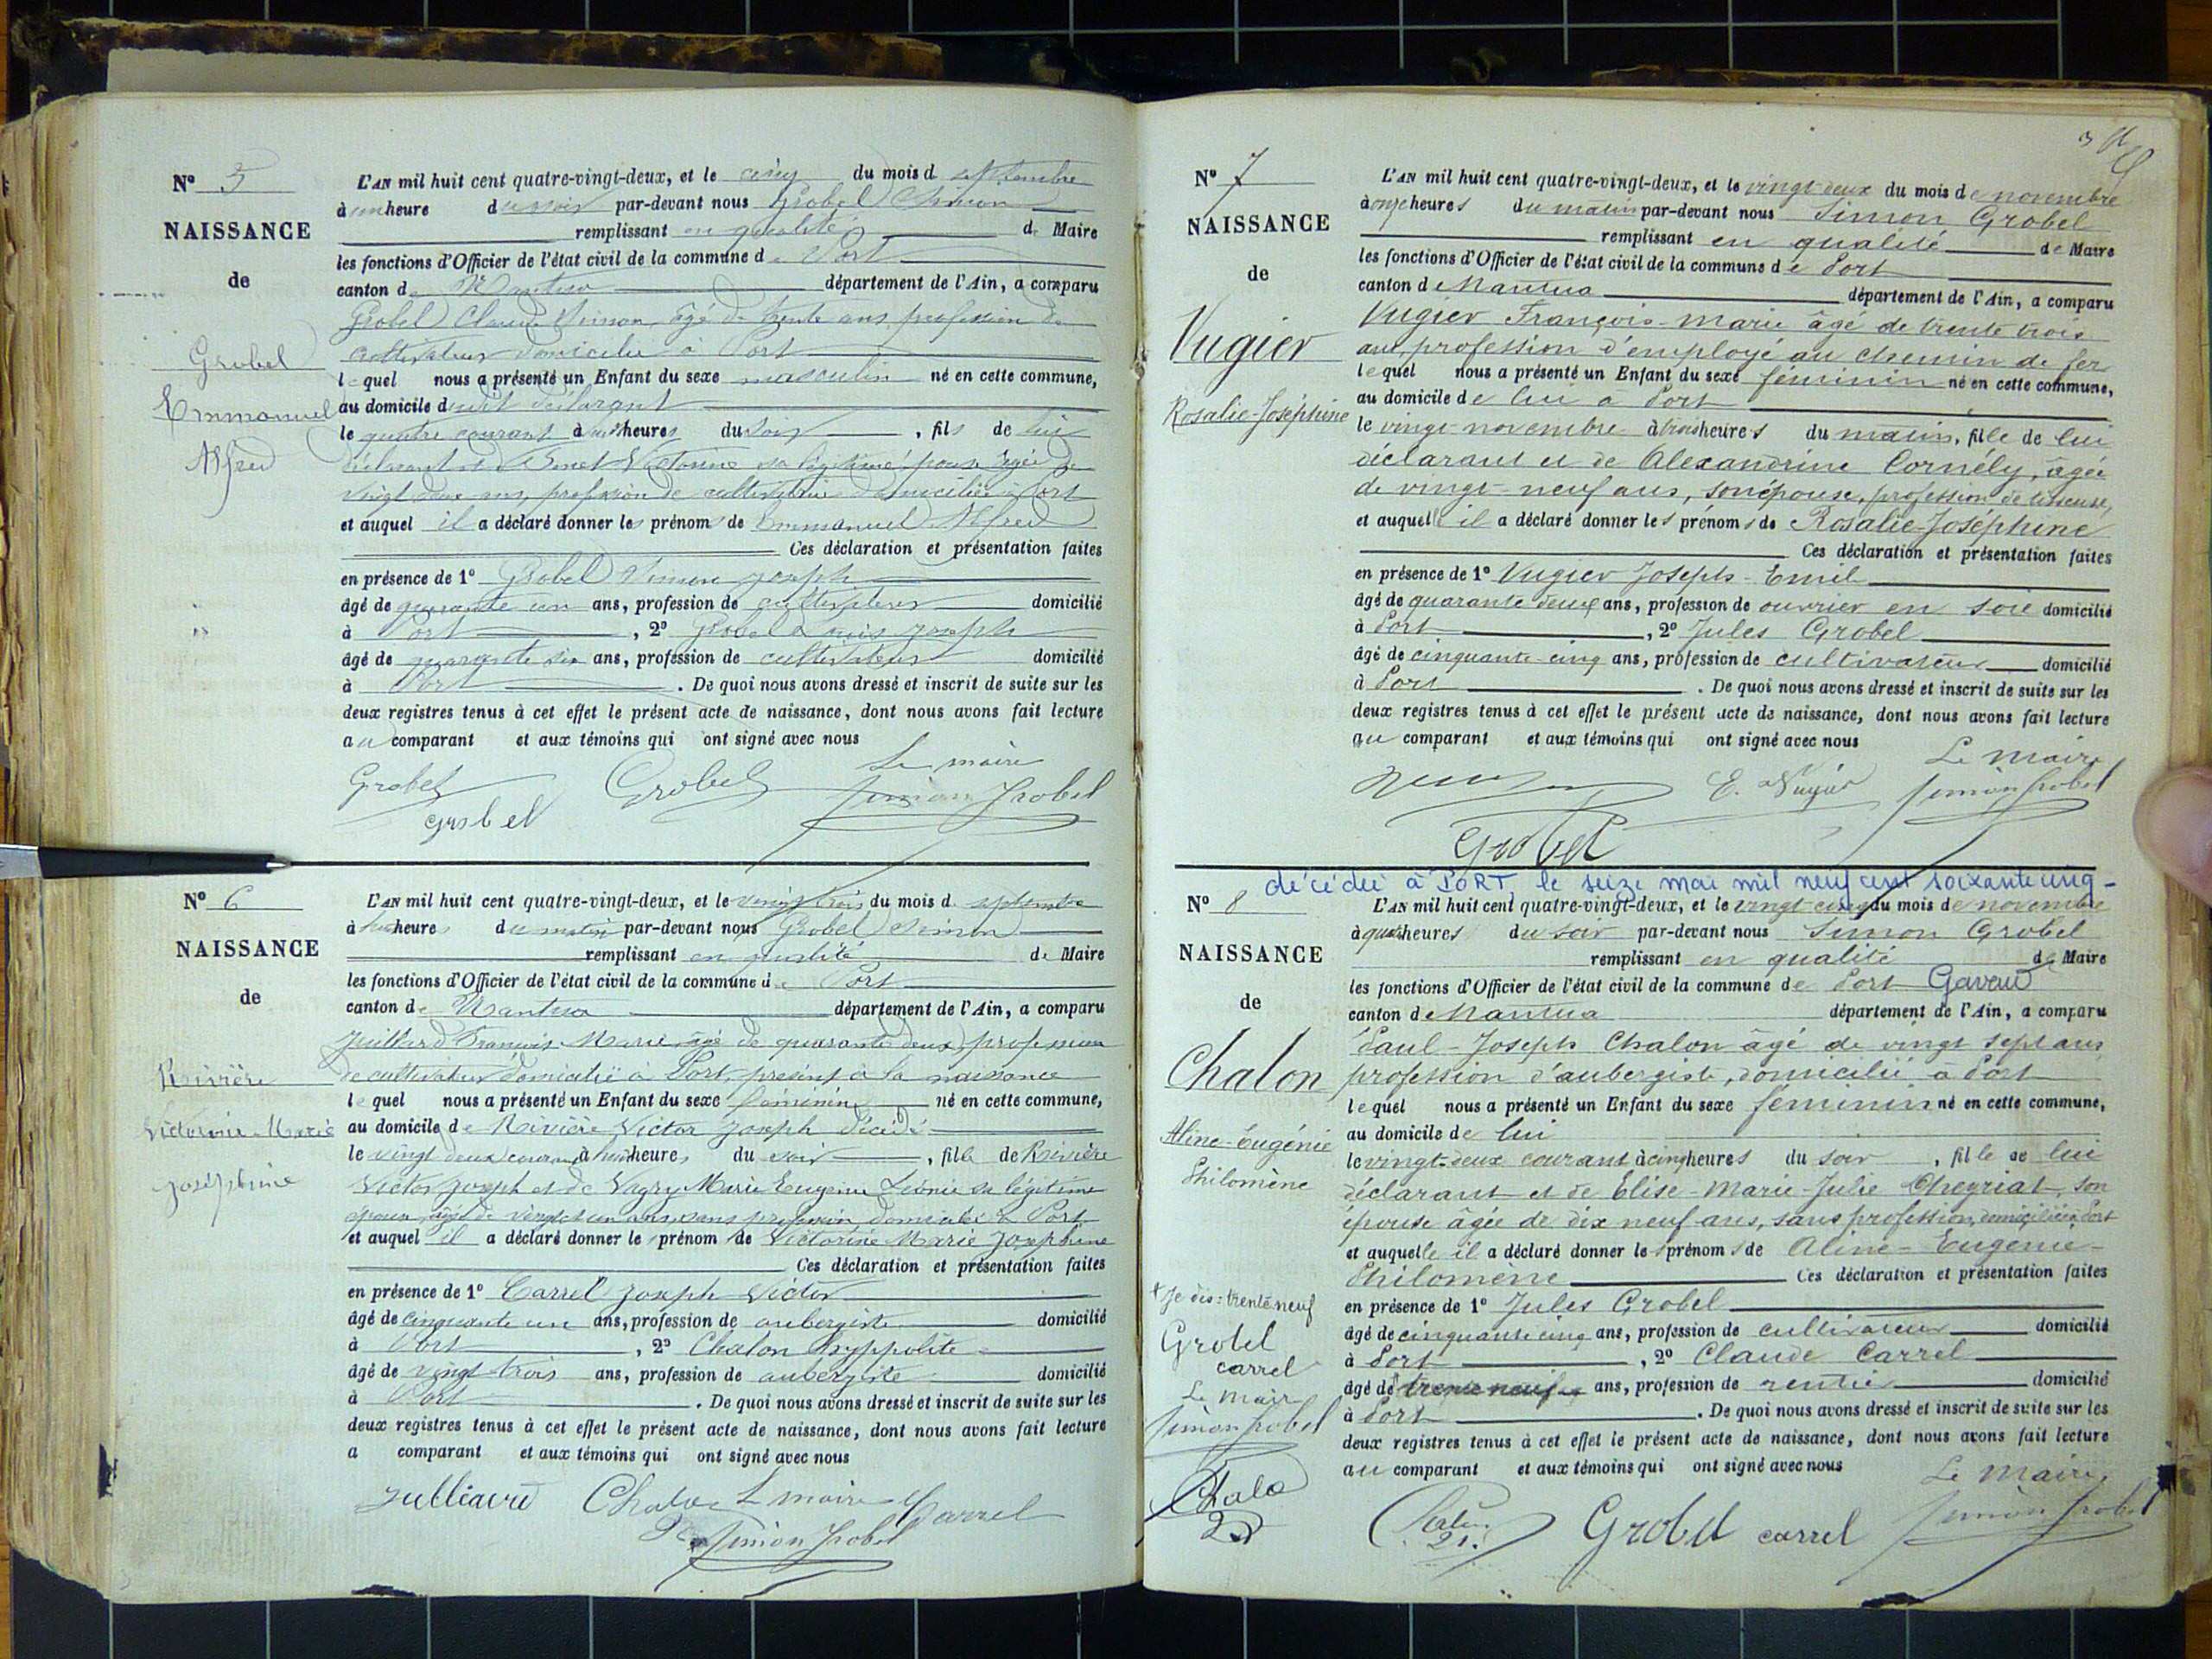 Nº 5
NAISSANCE
de
Grobel
Emmanuel
Alfred
L'AN mil huit cent quatre-vingt-deux, et le cinq du mois d septembre
à une heure du soir par-devant nous Grobel Simon
remplissant en qualité de Maire
les fonctions d'Officier de l'état civil de la commune de Port
canton de Nantua département de l'Ain, a comparu
Grobel Claude Simon âgé de trente ans profession de
cultivateur domicilié à Port
lequel nous a présenté un Enfant du sexe masculin né en cette commune,
au domicile dudit déclarant
le quatre courant à heures du soir, fils de lui
déclarant et de Victorine sa légitime épouse âgée de
vingt deux ans, profession de cultivatrice domiciliée à Port
et auquel il a déclaré donner les prénoms de Emmanuel Alfred
Ces déclaration et présentation faites
en présence de 1º Grobel Simon Joseph
âgé de quarante un ans, profession de cultivateur domicilié
à Port, 2º Grobel Joseph
âgé de quarante six ans, profession de cultivateur domicilié
à Port. De quoi nous avons dressé et inscrit de suite sur les
deux registres tenus à cet effet le présent acte de naissance, dont nous avons fait lecture
au comparant et aux témoins qui ont signé avec nous
Le maire
Grobel Grobel Simon Grobel
Grobel
Nº 6
NAISSANCE
de
Rivière
Victorine Marie
Joséphine
L'AN mil huit cent quatre-vingt-deux, et le vingt trois du mois d septembre
à heures du matin par-devant nous Grobel Simon
remplissant en qualité de Maire
les fonctions d'Officier de l'état civil de la commune de Port
canton de Nantua département de l'Ain, a comparu
Juilliard François Marie âgé de quarante deux, profession
de cultivateur domicilié à Port, présent à la naissance
lequel nous a présenté un Enfant du sexe féminin né en cette commune,
au domicile de Rivière Victor Joseph décédé
le vingt deux courant à heures du soir, fille de Rivière
Victor Joseph et de Vagry Marie Eugénie Léonie sa légitime
épouse, âgée de vingt et un ans, sans profession domiciliée à Port
et auquel il a déclaré donner les prénom de Victorine Marie Joséphine
Ces déclaration et présentation faites
en présence de 1º Carrel Joseph Victor
âgé de cinquante un ans, profession de aubergiste domicilié
à Port, 2º Chalon Hyppolite
âgé de vingt trois ans, profession de aubergiste domicilié
à Port. De quoi nous avons dressé et inscrit de suite sur les
deux registres tenus à cet effet le présent acte de naissance, dont nous avons fait lecture
a comparant et aux témoins qui ont signé avec nous
Juilliard Chalon Le maire Carrel
Simon Grobel
Nº 7
NAISSANCE
de
Vugier
Rosalie-Joséphine
L'AN mil huit cent quatre-vingt-deux, et le vingt-deux du mois de novembre
à onze heures du matin par-devant nous Simon Grobel
remplissant en qualité de Maire
les fonctions d'Officier de l'état civil de la commune de Port
canton de Nantua département de l'Ain, a comparu
Vugier François-Marie âgé de trente trois
ans, profession d'employé au chemin de fer
lequel nous a présenté un Enfant du sexe féminin né en cette commune,
au domicile de lui à Port
le vingt novembre à trois heures du matin, fille de lui
déclarant et de Alexandrine Cornély, âgée
de vingt-neuf ans, son épouse, profession de tisseuse,
et auquelle il a déclaré donner les prénoms de Rosalie-Joséphine
Ces déclaration et présentation faites
en présence de 1º Vugier Joseph-Emil
âgé de quarante deux ans, profession de ouvrier en soie domicilié
à Port, 2º Jules Grobel
âgé de cinquante-cinq ans, profession de cultivateur domicilié
à Port. De quoi nous avons dressé et inscrit de suite sur les
deux registres tenus à cet effet le présent acte de naissance, dont nous avons fait lecture
au comparant et aux témoins qui ont signé avec nous
Le Maire
E. Vugier Simon Grobel
Grobel
décédée à PORT, le seize mai mil neuf cent soixante cinq -
Nº 8
NAISSANCE
de
Chalon
Aline-Eugénie
Philomène
+ Je dis : trente neuf
Grobel
carrel
Le Maire
Simon Grobel
Chalo
L'AN mil huit cent quatre-vingt-deux, et le vingt-cinq du mois de novembre
à quatre heures du soir par-devant nous Simon Grobel
remplissant en qualité de Maire
les fonctions d'Officier de l'état civil de la commune de Port Gavaud
canton de Nantua département de l'Ain, a comparu
Paul-Joseph Chalon âgé de vingt sept ans
profession d'aubergiste, domicilié à Port
lequel nous a présenté un Enfant du sexe féminin né en cette commune,
au domicile de lui
le vingt-deux courant à cinq heures du soir, fille de lui
déclarant et de Elise-Marie-Julie Cheyriat, son
épouse âgée de dix neuf ans, sans profession, domiciliée à Port
et auquelle il a déclaré donner les prénoms de Aline-Eugénie-
Philomène Ces déclaration et présentation faites
en présence de 1º Jules Grobel
âgé de cinquante cinq ans, profession de cultivateur domicilié
à Port, 2º Claude Carrel
âgé de trente neuf ans, profession de rentier domicilié
à Port. De quoi nous avons dressé et inscrit de suite sur les
deux registres tenus à cet effet le présent acte de naissance, dont nous avons fait lecture
au comparant et aux témoins qui ont signé avec nous
Le Maire
Chalon Grobel carrel Simon Grobel